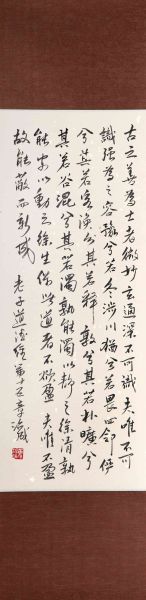 古之善為士者微妙玄通深不可識夫唯不可
識強為之容豫兮若冬涉川猶兮若畏四鄰儼
兮其若客渙兮其若釋敦兮其若朴曠兮
其若谷混兮其若濁孰能濁以靜之徐清孰
能安以動之徐生保此道者不欲盈夫唯不盈
故能蔽而新成 老子道德經第十五章